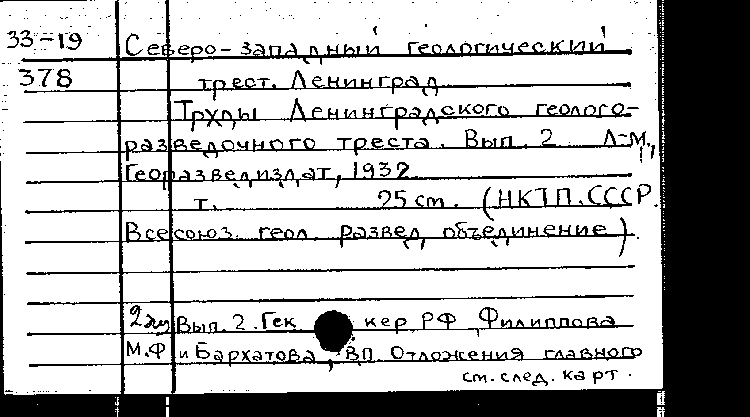 33-19 Северо-западный геологический
378 трест. Ленинград
Труды Ленинградского геолого-
разведочного треста. Вып. 2 Л-М.,
Георазведиздат, 1932
т. 25 cm. (НКТП.СССР.
Всесоюз. геол. развед. объединение).
2 экз Вып. 2. Гек кер, РФ, Филиппова
М.Ф и Бархатова, В.П. Отложения главного
см. след. карт.